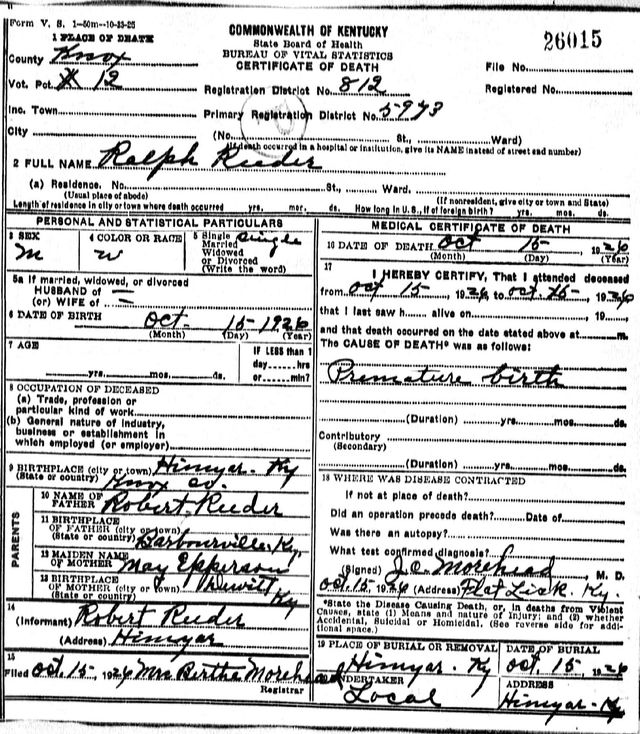 Form V. S. 1-50m--10-23-25
1 PLACE OF DEATH
COMMONWEALTH OF KENTUCKY
State Board of Health
BUREAU OF VITAL STATISTICS
CERTIFICATE OF DEATH
26015
County Knox
File No.
Vot. Pct. 12
Registration District No. 812
Registered No.
Inc. Town
Primary Registration District No. 5973
City
(No. St., Ward)
(If death occurred in a hospital or institution, give its NAME instead of street and number)
2 FULL NAME Ralph Reeder
(a) Residence. No. St., Ward.
(Usual place of abode)
(If nonresident, give city or town and State)
Length of residence in city or town where death occurred yrs. mos. ds. How long in U. S., if of foreign birth? yrs. mos. ds.
PERSONAL AND STATISTICAL PARTICULARS
3 SEX
M
4 COLOR OR RACE
W
5 Single
Married
Widowed
or Divorced
(Write the word)
Single
5a If married, widowed, or divorced
HUSBAND of —
(or) WIFE of —
6 DATE OF BIRTH Oct. 15 - 1926
(Month) (Day) (Year)
7 AGE
yrs. mos. ds.
IF LESS than 1
day hrs
or min?
8 OCCUPATION OF DECEASED
(a) Trade, profession or
particular kind of work
(b) General nature of industry,
business or establishment in
which employed (or employer)
9 BIRTHPLACE (city or town) Himyar - Ky
(State or country) Knox Co.
PARENTS
10 NAME OF
FATHER Robert Reeder
11 BIRTHPLACE
OF FATHER (city or town)
(State or country) Barbourville Ky.
12 MAIDEN NAME
OF MOTHER May Epperson
13 BIRTHPLACE
OF MOTHER (city or town) Dewitt
(State or country) Ky
14
(Informant) Robert Reeder
(Address) Himyar
15
Filed Oct. 15, 1926 Mrs Bertha Morehead
Registrar
MEDICAL CERTIFICATE OF DEATH
16 DATE OF DEATH Oct 15 - 1926
(Month) (Day) (Year)
17
I HEREBY CERTIFY, That I attended deceased
from Oct 15, 1926, to Oct. 15 - 1926
that I last saw h alive on , 19
and that death occurred on the date stated above at m.
The CAUSE OF DEATH* was as follows:
Premature birth
(Duration) yrs. mos. ds.
Contributory
(Secondary)
(Duration) yrs. mos. ds.
18 WHERE WAS DISEASE CONTRACTED
If not at place of death?
Did an operation precede death? Date of
Was there an autopsy?
What test confirmed diagnosis?
(Signed) J. C. Morehead, M. D.
Oct. 15, 1926 (Address) Flat Lick. Ky.
*State the Disease Causing Death, or, in deaths from Violent
Causes, state (1) Means and nature of Injury; and (2) whether
Accidental, Suicidal or Homicidal. (See reverse side for addi-
tional space.)
19 PLACE OF BURIAL OR REMOVAL
Himyar - Ky
DATE OF BURIAL
Oct. 15, 1926
UNDERTAKER
Local
ADDRESS
Himyar - Ky